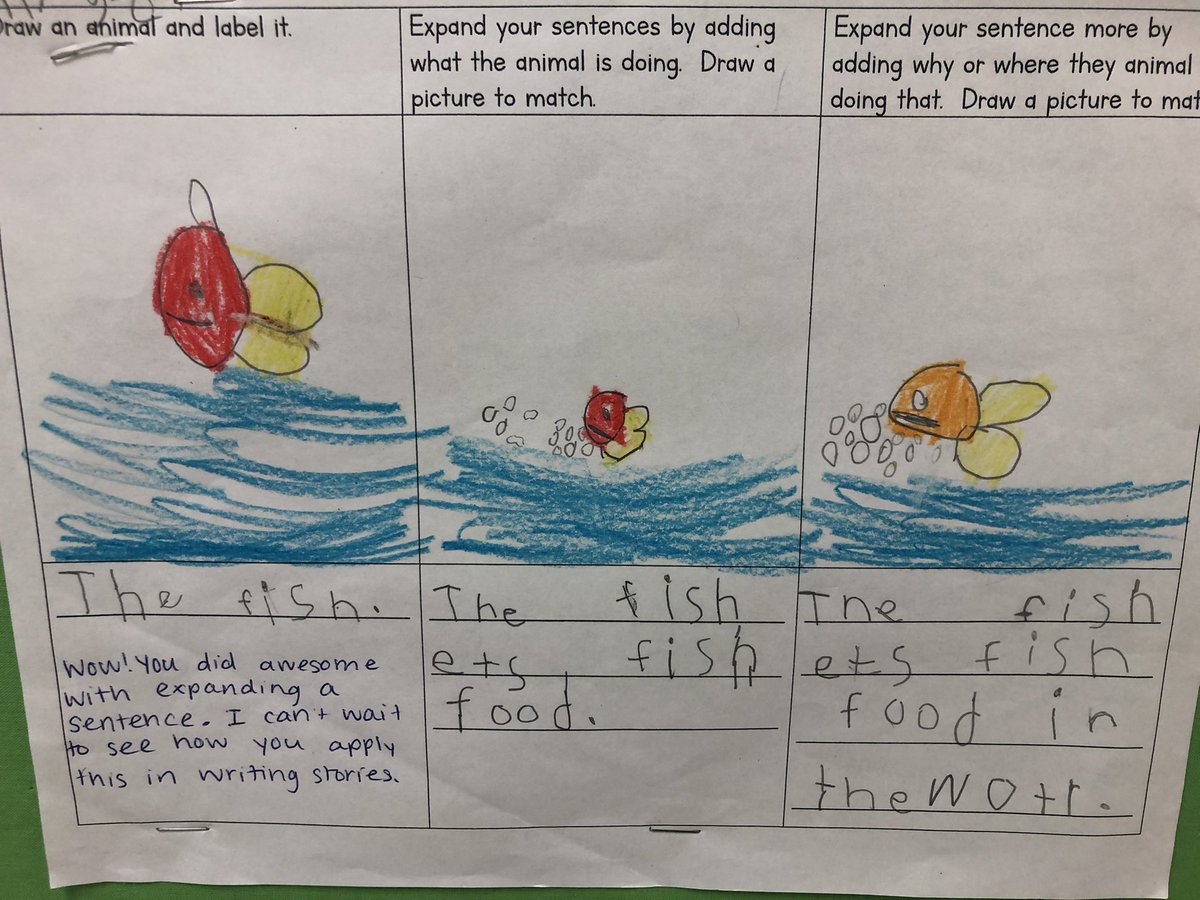 Draw an animal and label it.
Expand your sentences by adding
what the animal is doing. Draw a
picture to match.
Expand your sentence more by
adding why or where they animal
doing that. Draw a picture to mat
The fish.
Wow! You did awesome
with expanding a
sentence. I can't wait
to see how you apply
this in writing stories.
The fish
ets fish
food.
The fish
ets fish
food in
the wotr.